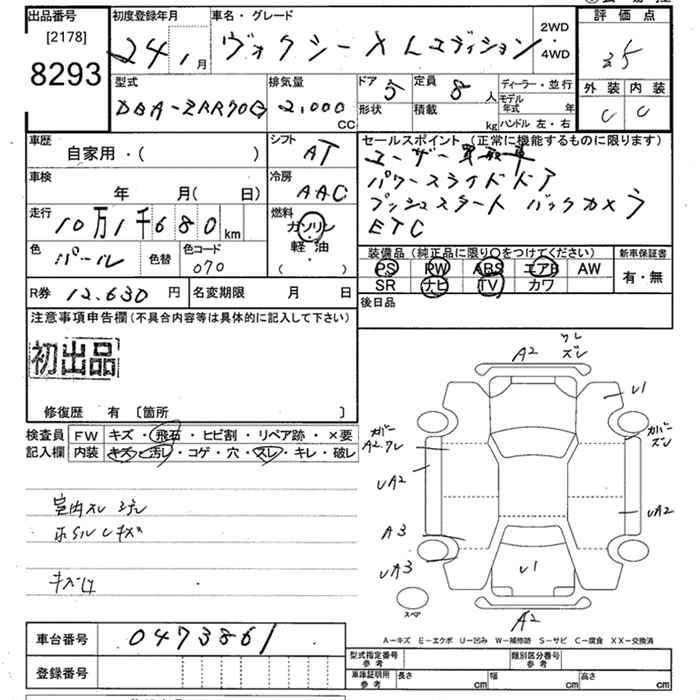 出品番号 初度登録年月 車名・グレード 評価点
[2178]
8293
24年1月 ヴォクシー X Lエディション 2WD・4WD 3.5
外装 内装
C C
型式 排気量 ドア 5 定員 8人 ディーラー・並行
DBA-ZRR70G 2,000 CC 形状 積載 kg モデル年式 年
ハンドル 左・右
車歴 シフト セールスポイント(正常に機能するものに限ります)
自家用・( ) AT ユーザー買取車
車検 冷房 パワースライドドア
年 月( 日) AAC プッシュスタート バックカメラ
走行 燃料 ETC
10万1千680km ガソリン
軽・油
( )
色 パール 色替 色コード 070
装備品(純正品に限り○をつけてください) 新車保証書
PS PW ABS エアB AW 有・無
SR ナビ TV カワ
R券 12,630円 名変期限 月 日 後日品
注意事項申告欄(不具合内容等は具体的に記入して下さい)
初出品
修復歴 有 〔箇所 〕
検査員 FW キズ・飛石・ヒビ割・リペア跡・×要
記入欄 内装 キズ・汚レ・コゲ・穴・スレ・キレ・破レ
A2 ズレ
U1
カバー
A2.ワレ
カバー
ズレ
UA2
UA2
A3
UA3
U1
スペア
A2
A-キズ E-エクボ U-凹み W-補修跡 S-サビ C-腐食 XX-交換済
車台番号 0473861
登録番号
型式指定番号 参考 類別区分番号 参考
車庫証明所 参考 長さ cm 幅 cm 高さ cm